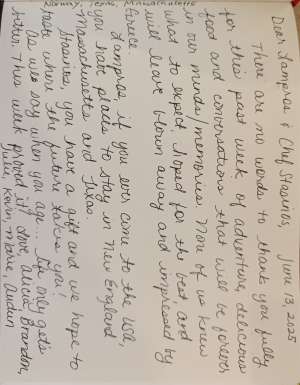 Norway, Texas, Massachusetts
June 13, 2025
Dear Lampros & Chef Stavros,
There are no words to thank you fully
for this past week of adventure, delicious
food and conversations that will be forever
in our minds/memories. None of us knew
what to expect, hoped for the best, and
will leave blown away and impressed by
Greece
Lampros, if you ever come to the USA,
you have places to stay in New England
Massachusetts and Texas.
Stavros, you have a gift and we hope to
taste where the future takes you!
As we say when you age... life only gets
better. This week proved it! Love, Alicia, Brandon,
Julie, Kevin, Marie,